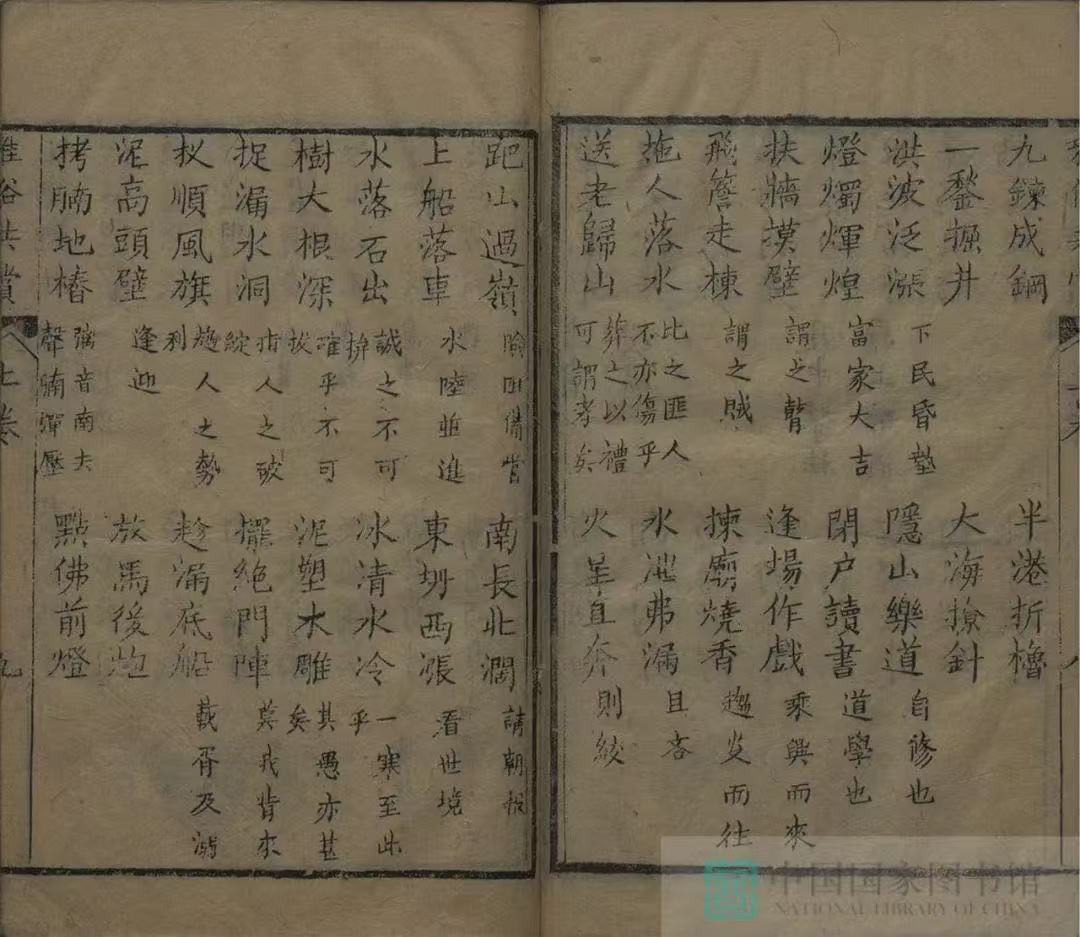 九鍊成鋼
半港折櫓
一鏊掘井
大海撩針
洪波泛漲 下民昏墊
隱山樂道 自修也
燈燭煇煌 富家大吉
閉户讀書 道學也
扶牆摸壁 謂之瞽
逢場作戲 乘興而來
飛簷走棟 謂之賊
揀廟燒香 趨炎而往
拖人落水 比之匪人不亦傷乎
水泄弗漏 且吝
送老歸山 葬之以禮可謂孝矣
火星直奔 則絞
跁山過嶺 險阻備嘗
南長北濶 請朝報
上船落車 水陸並進
東坍西漲 看世境
水落石出 誠之不可揜
冰清水冷 一寒至此乎
樹大根深 確乎不可拔
泥塑木雕 其愚亦甚矣
捉漏水洞 指人之破綻
擺絕門陣 莫我肯來
扠順風旗 趨人之勢利
趁漏底船 載胥及溺
泥高頭壁 逢迎
放馬後炮
拷腩地樁 音南去聲 彈壓
點佛前燈
雅俗共賞 上卷 九
八
中国国家图书馆
NATIONAL LIBRARY OF CHINA